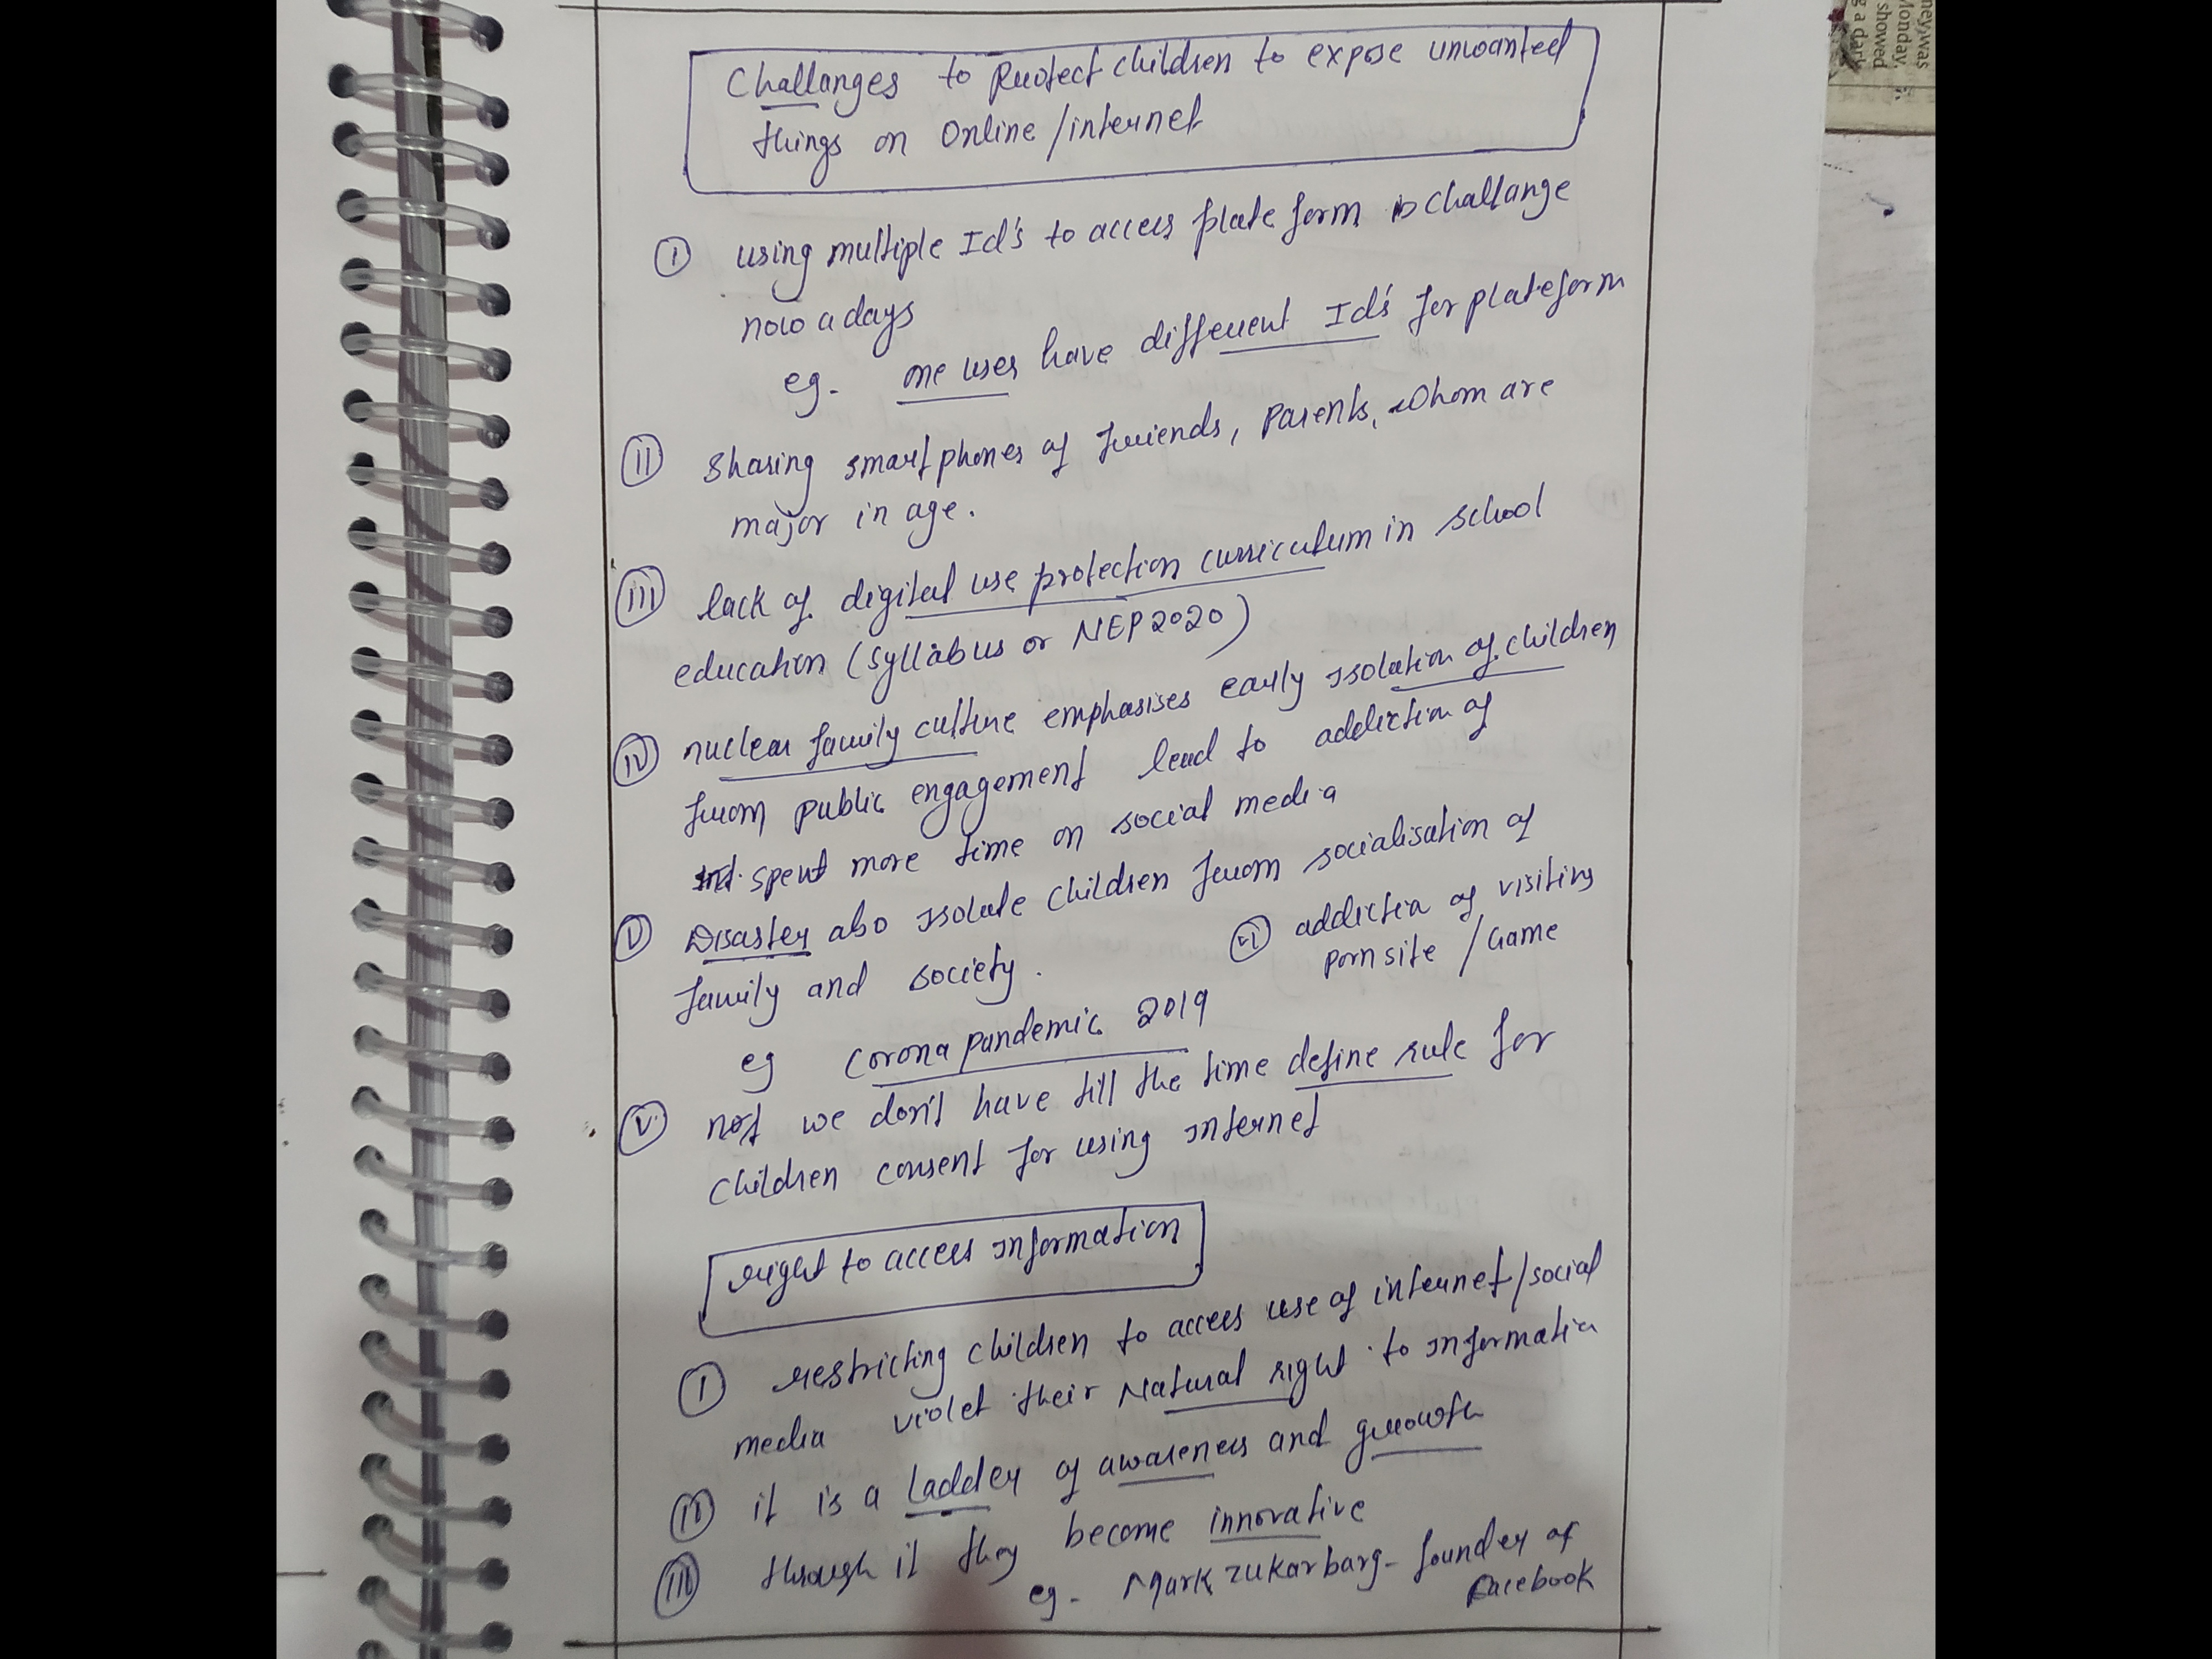 Challanges to Protect children to expose unwanted
things on Online/internet
(I) using multiple Id's to access plate form is challange
now a days
eg- one user have different Id's for plateform
(II) Sharing smartphones of friends, Parents, whom are
major in age.
(III) lack of digital use protection curriculum in school
education (syllabus or NEP 2020)
(IV) nuclear family culture emphasises early isolation of children
from public engagement lead to addiction of
spent more time on social media
(V) Disaster also isolate children from socialisation of
family and society.
(VI) addiction of visiting
porn site / Game
eg Corona pandemic 2019
(V) not we don't have till the time define rule for
children consent for using internet
right to access information
(I) restricting children to access use of internet/social
media violet their Natural right to information
(II) it is a ladder of awareness and growth
(III) through it they become innovative
eg- Mark zukarbarg- founder of
Facebook
neywas
Monday,
showed
g a dark